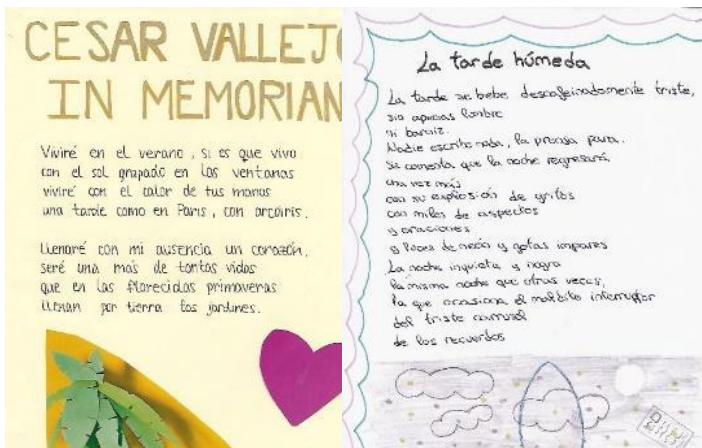 CESAR VALLEJ
IN MEMORIAN
Viviré en el verano, si es que vivo
con el sol grapado en las ventanas
viviré con el calor de tus manos
una tarde como en París, con arcoiris.
Llenaré con mi ausencia un corazón,
seré una más de tantas vidas
que en las florecidas primaveras
llenan por tierra los jardines.
La tarde húmeda
La tarde se bebe descafeinadamente triste,
sin apenas hombre
ni barniz.
Nadie escribe nada, la prensa para.
Se comenta que la noche regresará
una vez más
con su explosión de gritos
con miles de aspectos
y oraciones
y luces de neón y gotas impares
La noche inquieta y negra
la misma noche que otras veces,
la que ocasiona el maldito interruptor
del triste carrusel
de los recuerdos